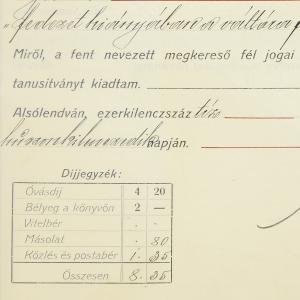 „fedezet hiányában a váltóra
Miről, a fent nevezett megkereső fél jogai
tanusitványt kiadtam.
Alsólendván, ezerkilenczszáz tiz
napján.
Díjjegyzék:
Óvásdíj 4 20
Bélyeg a könyvön 2 —
Vitelbér . .
Másolat . 80
Közlés és postabér 1. 35
Összesen 8. 35